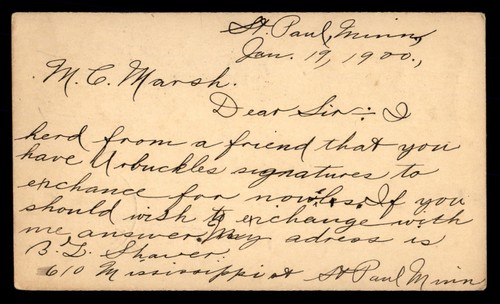 St. Paul, Minn,
Jan. 19, 1900.,
M. C. Marsh.
Dear Sir: I
herd from a friend that you
have Urbuckles signatures to
exchance for If you
should wish to exchange with
me answer. My adress is
B. L. Shaver.
610 Mississippi st St Paul Minn